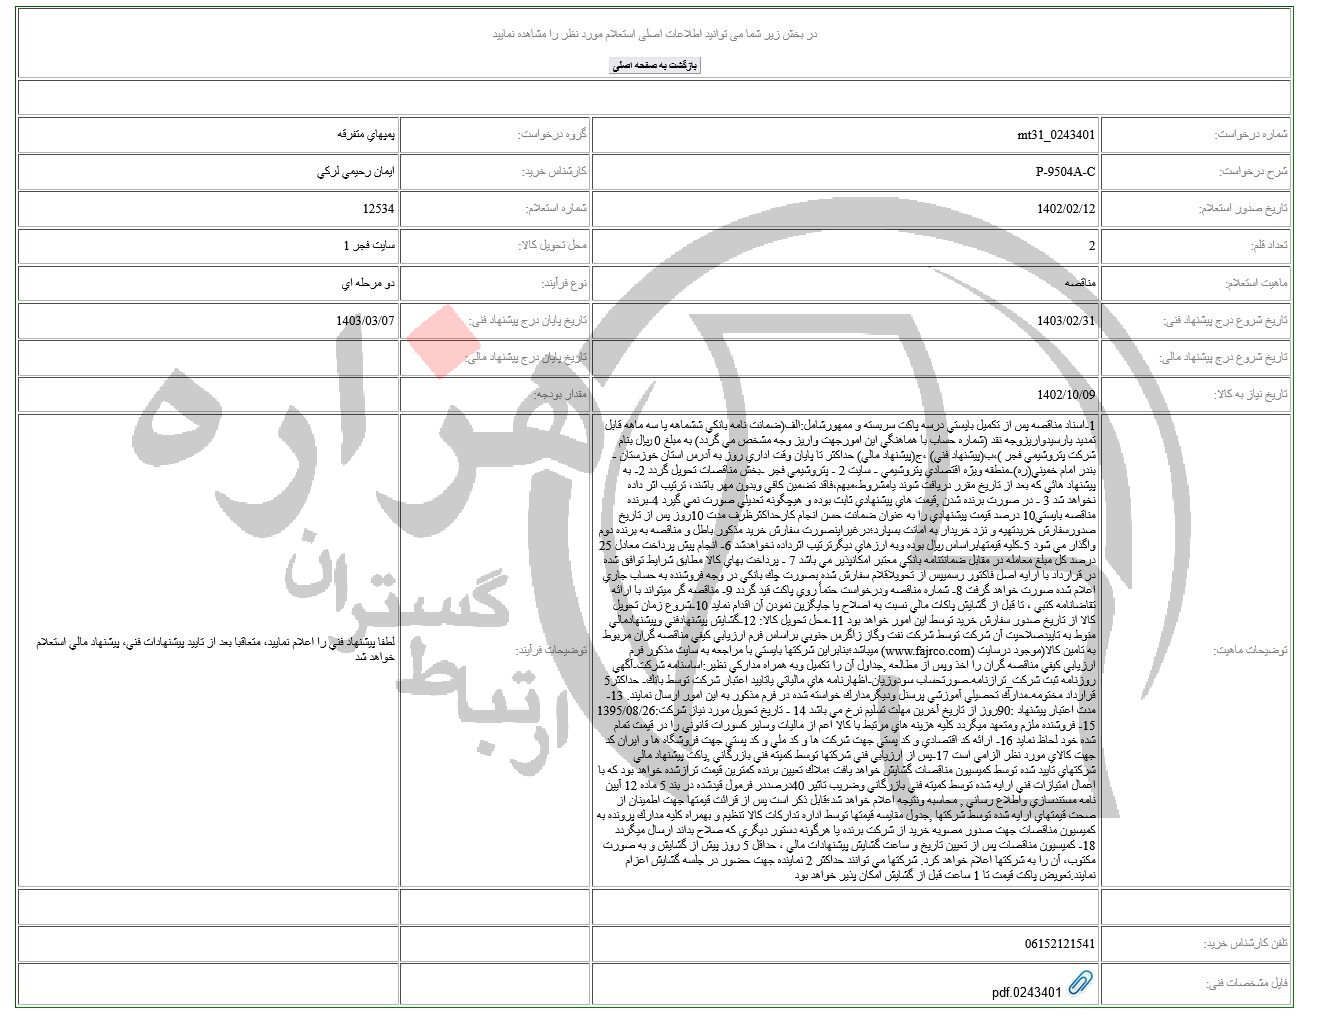 در بخش زیر شما می توانید اطلاعات اصلی استعلام مورد نظر را مشاهده نمایید
بازگشت به صفحه اصلی
شماره درخواست: mt31_0243401 گروه درخواست: پمپهاي متفرقه
شرح درخواست: P-9504A-C کارشناس خرید: ايمان رحيمي لركي
تاریخ صدور استعلام: 1402/02/12 شماره استعلام: 12534
تعداد قلم: 2 محل تحویل کالا: سايت فجر 1
ماهیت استعلام: مناقصه نوع فرآیند: دو مرحله اي
تاریخ شروع درج پیشنهاد فنی: 1403/02/31 تاریخ پایان درج پیشنهاد فنی: 1403/03/07
تاریخ شروع درج پیشنهاد مالی: تاریخ پایان درج پیشنهاد مالی:
تاریخ نیاز به کالا: 1402/10/09 مقدار بودجه:
توضیحات ماهیت:
1-اسناد مناقصه پس از تكميل بايستي درسه پاكت سربسته و ممهورشامل:الف(ضمانت نامه بانكي ششماهه يا سه ماهه قابل
تمديد يارسيدواريزوجه نقد (شماره حساب با هماهنگي اين امورجهت واريز وجه مشخص مي گردد) به مبلغ 0 ريال بنام
شركت پتروشيمي فجر )،ب(پيشنهاد فني) ،ج(پيشنهاد مالي) حداكثر تا پايان وقت اداري روز به آدرس استان خوزستان -
بندر امام خميني(ره)-منطقه ويژه اقتصادي پتروشيمي - سايت 2 - پتروشيمي فجر -بخش مناقصات تحويل گردد 2- به
پيشنهاد هائي كه بعد از تاريخ مقرر دريافت شوند يامشروط،مبهم،فاقد تضمين كافي وبدون مهر باشند، ترتيب اثر داده
نخواهد شد 3 - در صورت برنده شدن ,قيمت هاي پيشنهادي ثابت بوده و هيچگونه تعديلي صورت نمي گيرد 4-برنده
مناقصه بايستي10 درصد قيمت پيشنهادي را به عنوان ضمانت حسن انجام كارحداكثرظرف مدت 10روز پس از تاريخ
صدورسفارش خريدتهيه و نزد خريدار به امانت بسپارد؛درغيراينصورت سفارش خريد مذكور باطل و مناقصه به برنده دوم
واگذار مي شود 5-كليه قيمتهابراساس ريال بوده وبه ارزهاي ديگرترتيب اثرداده نخواهدشد 6- انجام پيش پرداخت معادل 25
درصد كل مبلغ معامله در مقابل ضمانتنامه بانكي معتبر امكانپذير مي باشد 7 - پرداخت بهاي كالا مطابق شرايط توافق شده
در قرارداد با ارايه اصل فاكتور رسميپس از تحويلاقلام سفارش شده بصورت چك بانكي در وجه فروشنده به حساب جاري
اعلام شده صورت خواهد گرفت 8- شماره مناقصه ودرخواست حتماً روي پاكت قيد گردد 9- مناقصه گر ميتواند با ارائه
تقاضانامه كتبي ، تا قبل از گشايش پاكات مالي نسبت به اصلاح يا جايگزين نمودن آن اقدام نمايد 10-شروع زمان تحويل
كالا از تاريخ صدور سفارش خريد توسط اين امور خواهد بود 11-محل تحويل كالا: 12-گشايش پيشنهادفني وپيشنهادمالي
منوط به تاييدصلاحيت آن شركت توسط شركت نفت وگاز زاگرس جنوبي براساس فرم ارزيابي كيفي مناقصه گران مربوط
به تامين كالا(موجود درسايت (www.fajrco.com) ميباشد؛بنابراين شركتها بايستي با مراجعه به سايت مذكور فرم
ارزيابي كيفي مناقصه گران را اخذ وپس از مطالعه ,جداول آن را تكميل وبه همراه مداركي نظير:اساسنامه شركت-آگهي
روزنامه ثبت شركت_ترازنامه-صورتحساب سودوزيان-اظهارنامه هاي مالياتي ياتاييد اعتبار شركت توسط بانك- حداكثر5
قرارداد مختومه-مدارك تحصيلي آموزشي پرسنل وديگرمدارك خواسته شده در فرم مذكور به اين امور ارسال نمايند. 13-
مدت اعتبار پيشنهاد :90روز از تاريخ آخرين مهلت تسليم نرخ مي باشد 14 - تاريخ تحويل مورد نياز شركت:1395/08/26
15- فروشنده ملزم ومتعهد ميگردد كليه هزينه هاي مرتبط با كالا اعم از ماليات وساير كسورات قانوني را در قيمت تمام
شده خود لحاظ نمايد 16- ارائه كد اقتصادي و كد پستي جهت شركت ها و كد ملي و كد پستي جهت فروشگاه ها و ايران كد
جهت كالاي مورد نظر الزامي است 17-پس از ارزيابي فني شركتها توسط كميته فني بازرگاني ,پاكت پيشنهاد مالي
شركتهاي تاييد شده توسط كميسيون مناقصات گشايش خواهد يافت ؛ملاك تعيين برنده كمترين قيمت ترازشده خواهد بود كه با
اعمال امتيازات فني ارايه شده توسط كميته فني بازرگاني وضريب تاثير 40درصددر فرمول قيدشده در بند 5 ماده 12 آيين
نامه مستندسازي واطلاع رساني , محاسبه ونتيجه اعلام خواهد شد؛قابل ذكر است پس از قرائت قيمتها جهت اطمينان از
صحت قيمتهاي ارايه شده توسط شركتها ,جدول مقايسه قيمتها توسط اداره تداركات كالا تنظيم و بهمراه كليه مدارك پرونده به
كميسيون مناقصات جهت صدور مصوبه خريد از شركت برنده يا هرگونه دستور ديگري كه صلاح بداند ارسال ميگردد
18- كميسيون مناقصات پس از تعيين تاريخ و ساعت گشايش پيشنهادات مالي ، حداقل 5 روز پيش از گشايش و به صورت
مكتوب، آن را به شركتها اعلام خواهد كرد. شركتها مي توانند حداكثر 2 نماينده جهت حضور در جلسه گشايش اعزام
نمايند.تعويض پاكت قيمت تا 1 ساعت قبل از گشايش امكان پذير خواهد بود
توضیحات فرآیند:
لطفا پيشنهاد فني را اعلام نماييد، متعاقبا بعد از تاييد پيشنهادات فني، پيشنهاد مالي استعلام
خواهد شد
تلفن کارشناس خرید: 06152121541
فایل مشخصات فنی: pdf.0243401
هزاره
گستران
ارتباط